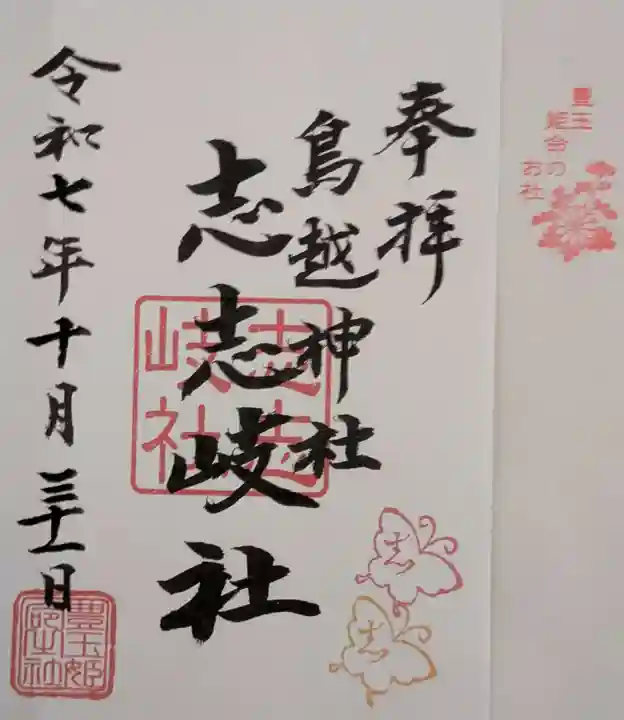 豊玉
姫命の
お社
奉拝
鳥越神社
志志岐社
志志岐社
志
志
令和七年十月三十一日
豊玉姫